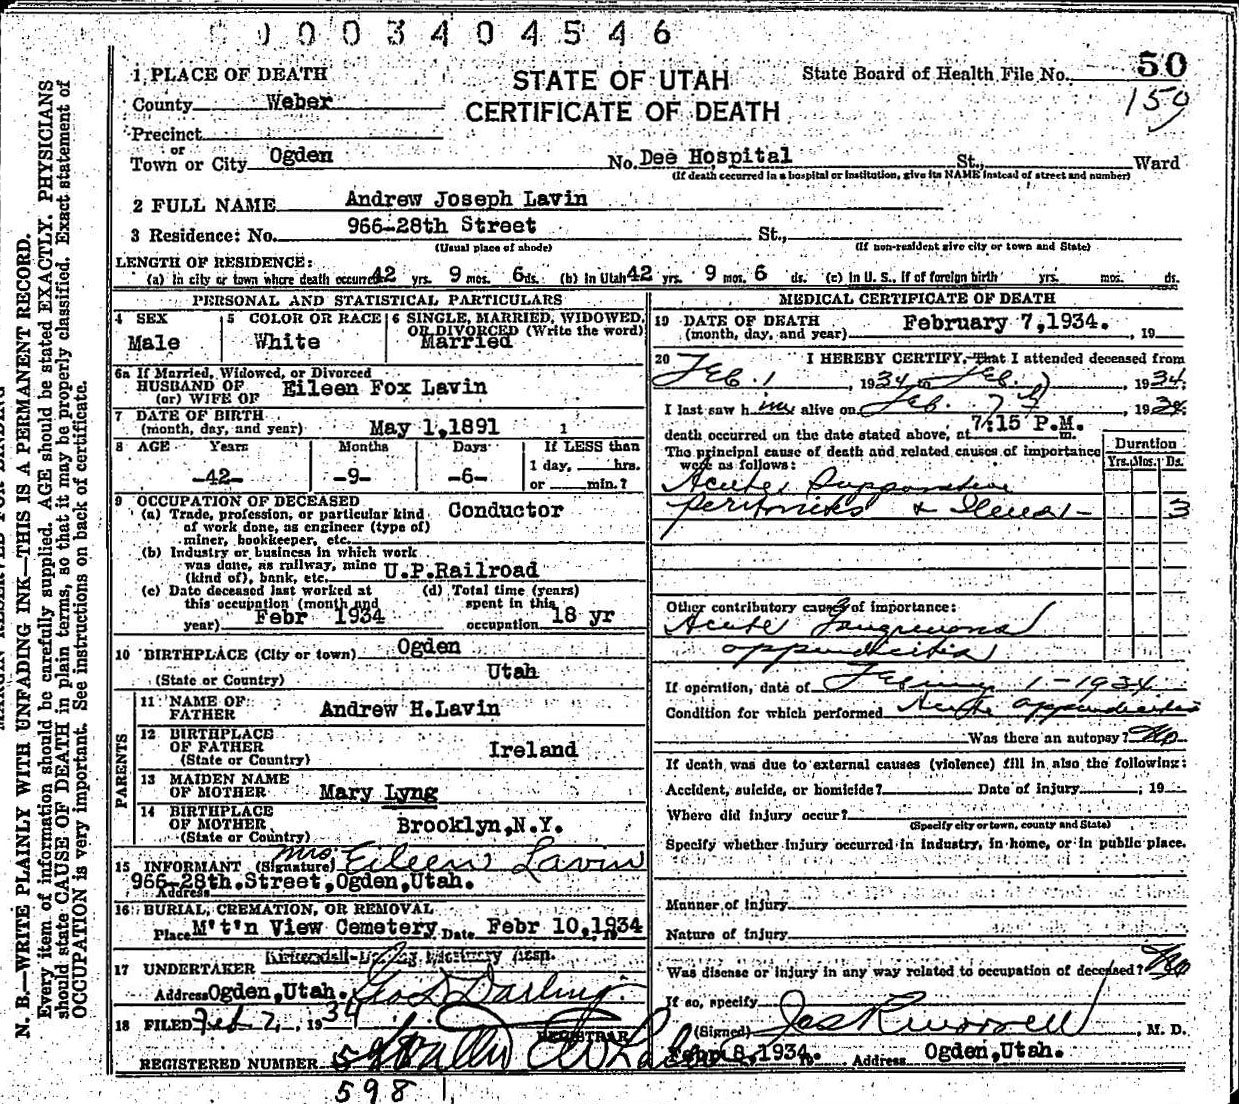 0 0 0 0 3 4 0 4 5 4 6
1 PLACE OF DEATH
STATE OF UTAH
CERTIFICATE OF DEATH
State Board of Health File No. 50
159
County Weber
Precinct
or
Town or City Ogden No. Dee Hospital St., Ward
(If death occurred in a hospital or institution, give its NAME instead of street and number)
2 FULL NAME Andrew Joseph Lavin
3 Residence: No. 966-28th Street St.,
(Usual place of abode) (If non-resident give city or town and State)
LENGTH OF RESIDENCE:
(a) In city or town where death occurred 42 yrs. 9 mos. 6 ds. (b) In Utah 42 yrs. 9 mos. 6 ds. (c) In U. S., if of foreign birth yrs. mos. ds.
PERSONAL AND STATISTICAL PARTICULARS
4 SEX
Male
5 COLOR OR RACE
White
6 SINGLE, MARRIED, WIDOWED,
OR DIVORCED (Write the word)
Married
6a If Married, Widowed, or Divorced
HUSBAND OF
(or) WIFE OF Eileen Fox Lavin
7 DATE OF BIRTH
(month, day, and year) May 1,1891
8 AGE Years Months Days If LESS than
-42- -9- -6- 1 day, hrs.
or min.?
9 OCCUPATION OF DECEASED
(a) Trade, profession, or particular kind
of work done, as engineer (type of)
miner, bookkeeper, etc. Conductor
(b) Industry or business in which work
was done, as railway, mine
(kind of), bank, etc. U.P.Railroad
(c) Date deceased last worked at
this occupation (month and
year) Febr 1934
(d) Total time (years)
spent in this
occupation 18 yr
10 BIRTHPLACE (City or town) Ogden
(State or Country) Utah
PARENTS
11 NAME OF
FATHER Andrew H.Lavin
12 BIRTHPLACE
OF FATHER
(State or Country) Ireland
13 MAIDEN NAME
OF MOTHER Mary Lyng
14 BIRTHPLACE
OF MOTHER
(State or Country) Brooklyn,N.Y.
15 INFORMANT (Signature) Mrs Eileen Lavin
966-28th.Street,Ogden,Utah.
Address
16 BURIAL, CREMATION, OR REMOVAL
Place M't'n View Cemetery Date Febr 10,1934
17 UNDERTAKER
Address Ogden,Utah. Geo S Darling
18 FILED Feb 7, 1934
REGISTRAR
REGISTERED NUMBER
598
MEDICAL CERTIFICATE OF DEATH
19 DATE OF DEATH
(month, day, and year) February 7,1934. , 19
20 I HEREBY CERTIFY, That I attended deceased from
Feb. 1, 1934 to Feb. 7, 1934.
I last saw him alive on Feb. 7th, 1934.
death occurred on the date stated above, at 7:15 P.M. m.
The principal cause of death and related causes of importance
were as follows:
Duration
Yrs. Mos. Ds.
Acute Suppurative
peritonitis & Ileus - 3
Other contributory causes of importance:
Acute Gangrenous
appendicitis
If operation, date of February 1-1934
Condition for which performed Acute appendicitis
Was there an autopsy? No
If death was due to external causes (violence) fill in also the following:
Accident, suicide, or homicide? Date of injury , 19
Where did injury occur?
(Specify city or town, county and State)
Specify whether injury occurred in industry, in home, or in public place.
Manner of injury
Nature of injury
Was disease or injury in any way related to occupation of deceased? No
If so, specify
(Signed) , M. D.
Febr 8,1934. Address Ogden,Utah.
N. B.—WRITE PLAINLY WITH UNFADING INK—THIS IS A PERMANENT RECORD.
Every item of information should be carefully supplied. AGE should be stated EXACTLY. PHYSICIANS
should state CAUSE OF DEATH in plain terms, so that it may be properly classified. Exact statement of
OCCUPATION is very important. See instructions on back of certificate.